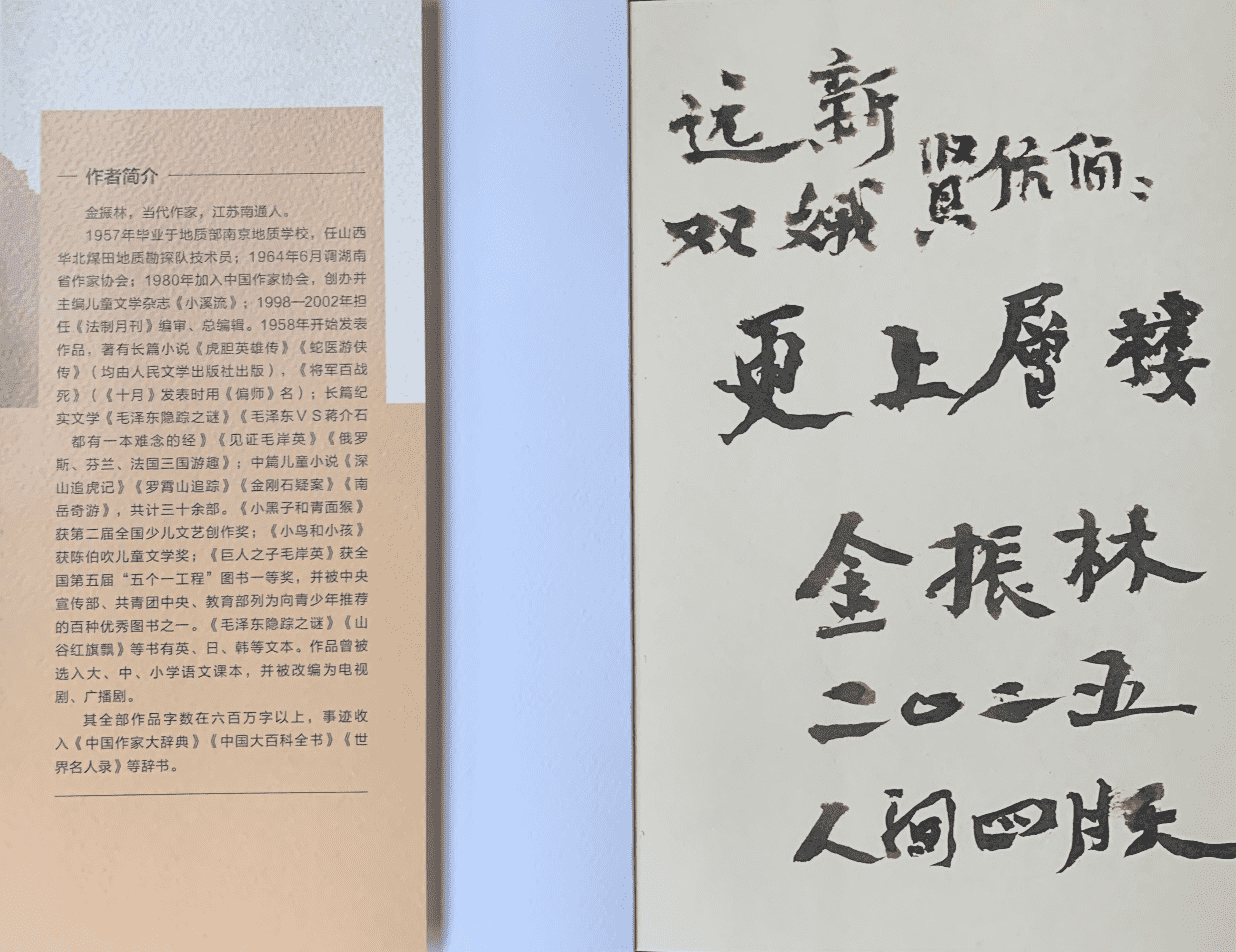 作者简介
金振林，当代作家，江苏南通人。
1957年毕业于地质部南京地质学校，任山西
华北煤田地质勘探队技术员；1964年6月调湖南
省作家协会；1980年加入中国作家协会，创办并
主编儿童文学杂志《小溪流》；1998—2002年担
任《法制月刊》编审、总编辑。1958年开始发表
作品，著有长篇小说《虎胆英雄传》《蛇医游侠
传》（均由人民文学出版社出版），《将军百战
死》（《十月》发表时用《偏师》名）；长篇纪
实文学《毛泽东隐踪之谜》《毛泽东ＶＳ蒋介石
都有一本难念的经》《见证毛岸英》《俄罗
斯、芬兰、法国三国游趣》；中篇儿童小说《深
山追虎记》《罗霄山追踪》《金刚石疑案》《南
岳奇游》，共计三十余部。《小黑子和青面猴》
获第二届全国少儿文艺创作奖；《小鸟和小孩》
获陈伯吹儿童文学奖；《巨人之子毛岸英》获全
国第五届“五个一工程”图书一等奖，并被中央
宣传部、共青团中央、教育部列为向青少年推荐
的百种优秀图书之一。《毛泽东隐踪之谜》《山
谷红旗飘》等书有英、日、韩等文本。作品曾被
选入大、中、小学语文课本，并被改编为电视
剧、广播剧。
其全部作品字数在六百万字以上，事迹收
入《中国作家大辞典》《中国大百科全书》《世
界名人录》等辞书。
远新
双娥賢伉俪：
更上層楼
金振林
二〇二五
人间四月天